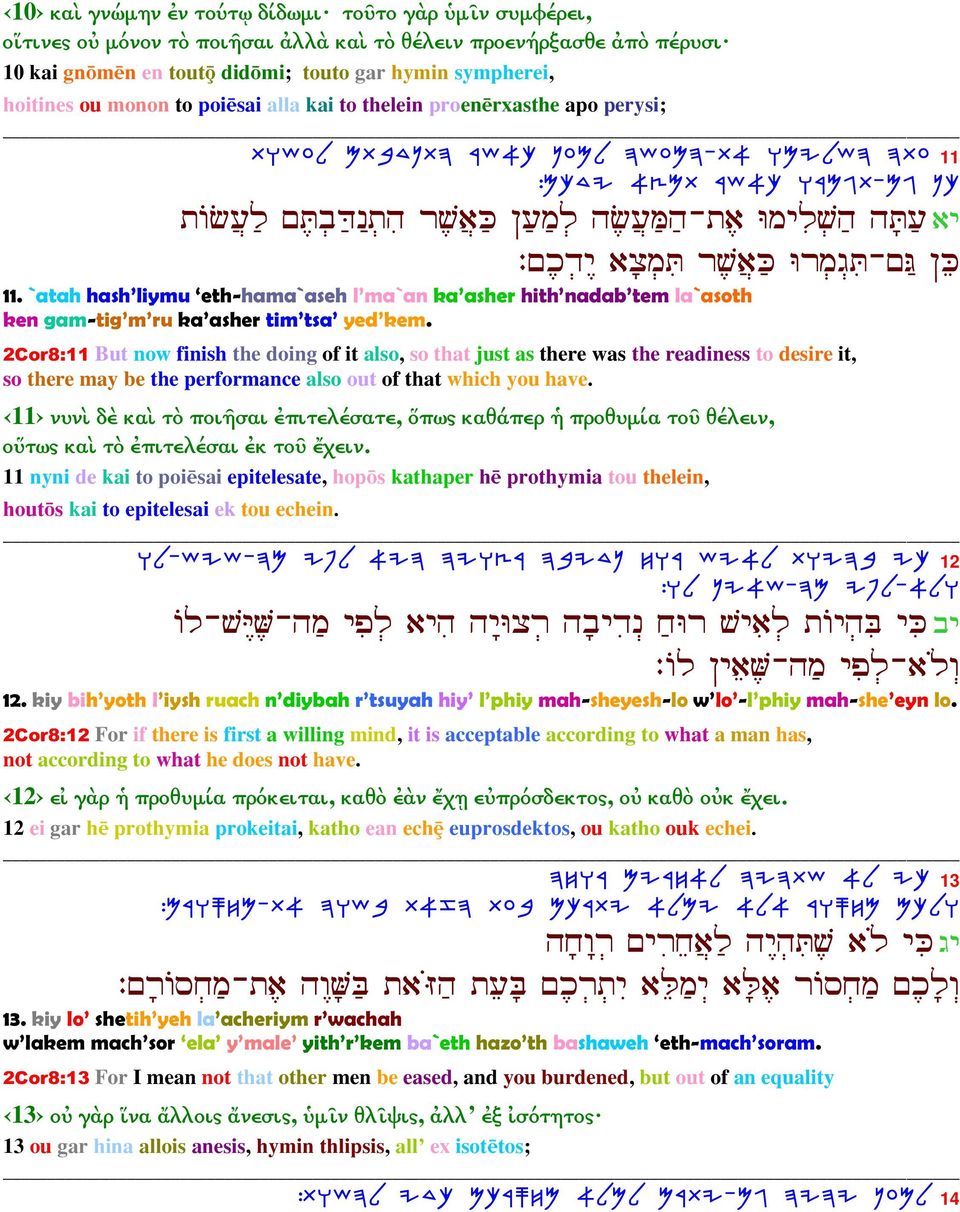 ‹10› καὶ γνώμην ἐν τούτῳ δίδωμι· τοῦτο γὰρ ὑμῖν συμφέρει,
οἵτινες οὐ μόνον τὸ ποιῆσαι ἀλλὰ καὶ τὸ θέλειν προενήρξασθε ἀπὸ πέρυσι·
10 kai gnōmēn en toutō̧ didōmi; touto gar hymin sympherei,
hoitines ou monon to poiēsai alla kai to thelein proenērxasthe apo perysi;
11 𐤏𐤕𐤄 𐤄𐤔𐤋𐤉𐤌𐤅 𐤀𐤕-𐤄𐤌𐤏𐤔𐤄 𐤋𐤌𐤏𐤍 𐤊𐤀𐤔𐤓 𐤄𐤕𐤍𐤃𐤁𐤕𐤌 𐤋𐤏𐤔𐤅𐤕
𐤊𐤍 𐤂𐤌-𐤕𐤂𐤌𐤓𐤅 𐤊𐤀𐤔𐤓 𐤕𐤌𐤑𐤀 𐤉𐤃𐤊𐤌:
יא עַתָּה הַשְׁלִימוּ אֶת־הַמַּעֲשֶׂה לְמַעַן כַּאֲשֶׁר הִתְנַדַּבְתֶּם לַעֲשׂוֹת
כֵּן גַּם־תִּגְמְרוּ כַּאֲשֶׁר תִּמְצָא יֶדְכֶם׃
11. `atah hash'liymu 'eth-hama`aseh l'ma`an ka'asher hith'nadab'tem la`asoth
ken gam-tig'm'ru ka'asher tim'tsa' yed'kem.
2Cor8:11 But now finish the doing of it also, so that just as there was the readiness to desire it,
so there may be the performance also out of that which you have.
‹11› νυνὶ δὲ καὶ τὸ ποιῆσαι ἐπιτελέσατε, ὅπως καθάπερ ἡ προθυμία τοῦ θέλειν,
οὕτως καὶ τὸ ἐπιτελέσαι ἐκ τοῦ ἔχειν.
11 nyni de kai to poiēsai epitelesate, hopōs kathaper hē prothymia tou thelein,
houtōs kai to epitelesai ek tou echein.
12 𐤊𐤉 𐤁𐤄𐤉𐤅𐤕 𐤋𐤀𐤉𐤔 𐤓𐤅𐤇 𐤍𐤃𐤉𐤁𐤄 𐤓𐤑𐤅𐤉𐤄 𐤄𐤉𐤀 𐤋𐤐𐤉 𐤌𐤄-𐤔𐤉𐤔-𐤋𐤅
𐤅𐤋𐤀-𐤋𐤐𐤉 𐤌𐤄-𐤔𐤀𐤉𐤍 𐤋𐤅:
יב כִּי בִּהְיוֹת לְאִישׁ רוּחַ נְדִיבָה רְצוּיָה הִיא לְפִי מַה־שֶּׁיֶּשׁ־לוֹ
וְלֹא־לְפִי מַה־שֶּׁאֵין לוֹ׃
12. kiy bih'yoth l'iysh ruach n'diybah r'tsuyah hiy' l'phiy mah-sheyesh-lo w'lo'-l'phiy mah-she'eyn lo.
2Cor8:12 For if there is first a willing mind, it is acceptable according to what a man has,
not according to what he does not have.
‹12› εἰ γὰρ ἡ προθυμία πρόκειται, καθὸ ἐὰν ἔχῃ εὐπρόσδεκτος, οὐ καθὸ οὐκ ἔχει.
12 ei gar hē prothymia prokeitai, katho ean echȩ̄ euprosdektos, ou katho ouk echei.
13 𐤊𐤉 𐤋𐤀 𐤔𐤕𐤄𐤉𐤄 𐤋𐤀𐤇𐤓𐤉𐤌 𐤓𐤅𐤇𐤄
𐤅𐤋𐤊𐤌 𐤌𐤇𐤎𐤅𐤓 𐤀𐤋𐤀 𐤉𐤌𐤋𐤀 𐤉𐤕𐤓𐤊𐤌 𐤁𐤏𐤕 𐤄𐤆𐤀𐤕 𐤁𐤔𐤅𐤄 𐤀𐤕-𐤌𐤇𐤎𐤅𐤓𐤌:
יג כִּי לֹא שֶׁתִּהְיֶה לַאֲחֵרִים רְוָחָה
וְלָכֶם מַחְסוֹר אֶלָּא יְמַלֵּא יִתְרְכֶם בָּעֵת הַזֹּאת בַּשָּׁוֶה אֶת־מַחְסוֹרָם׃
13. kiy lo' shetih'yeh la'acheriym r'wachah
w'lakem mach'sor 'ela' y'male' yith'r'kem ba`eth hazo'th bashaweh 'eth-mach'soram.
2Cor8:13 For I mean not that other men be eased, and you burdened, but out of an equality
‹13› οὐ γὰρ ἵνα ἄλλοις ἄνεσις, ὑμῖν θλῖψις, ἀλλ' ἐξ ἰσότητος·
13 ou gar hina allois anesis, hymin thlipsis, all' ex isotētos;
14 𐤋𐤌𐤏𐤍 𐤉𐤄𐤉𐤄 𐤂𐤌-𐤉𐤕𐤓𐤌 𐤋𐤌𐤋𐤀 𐤌𐤇𐤎𐤓𐤊𐤌 𐤊𐤃𐤉 𐤋𐤄𐤔𐤅𐤕: